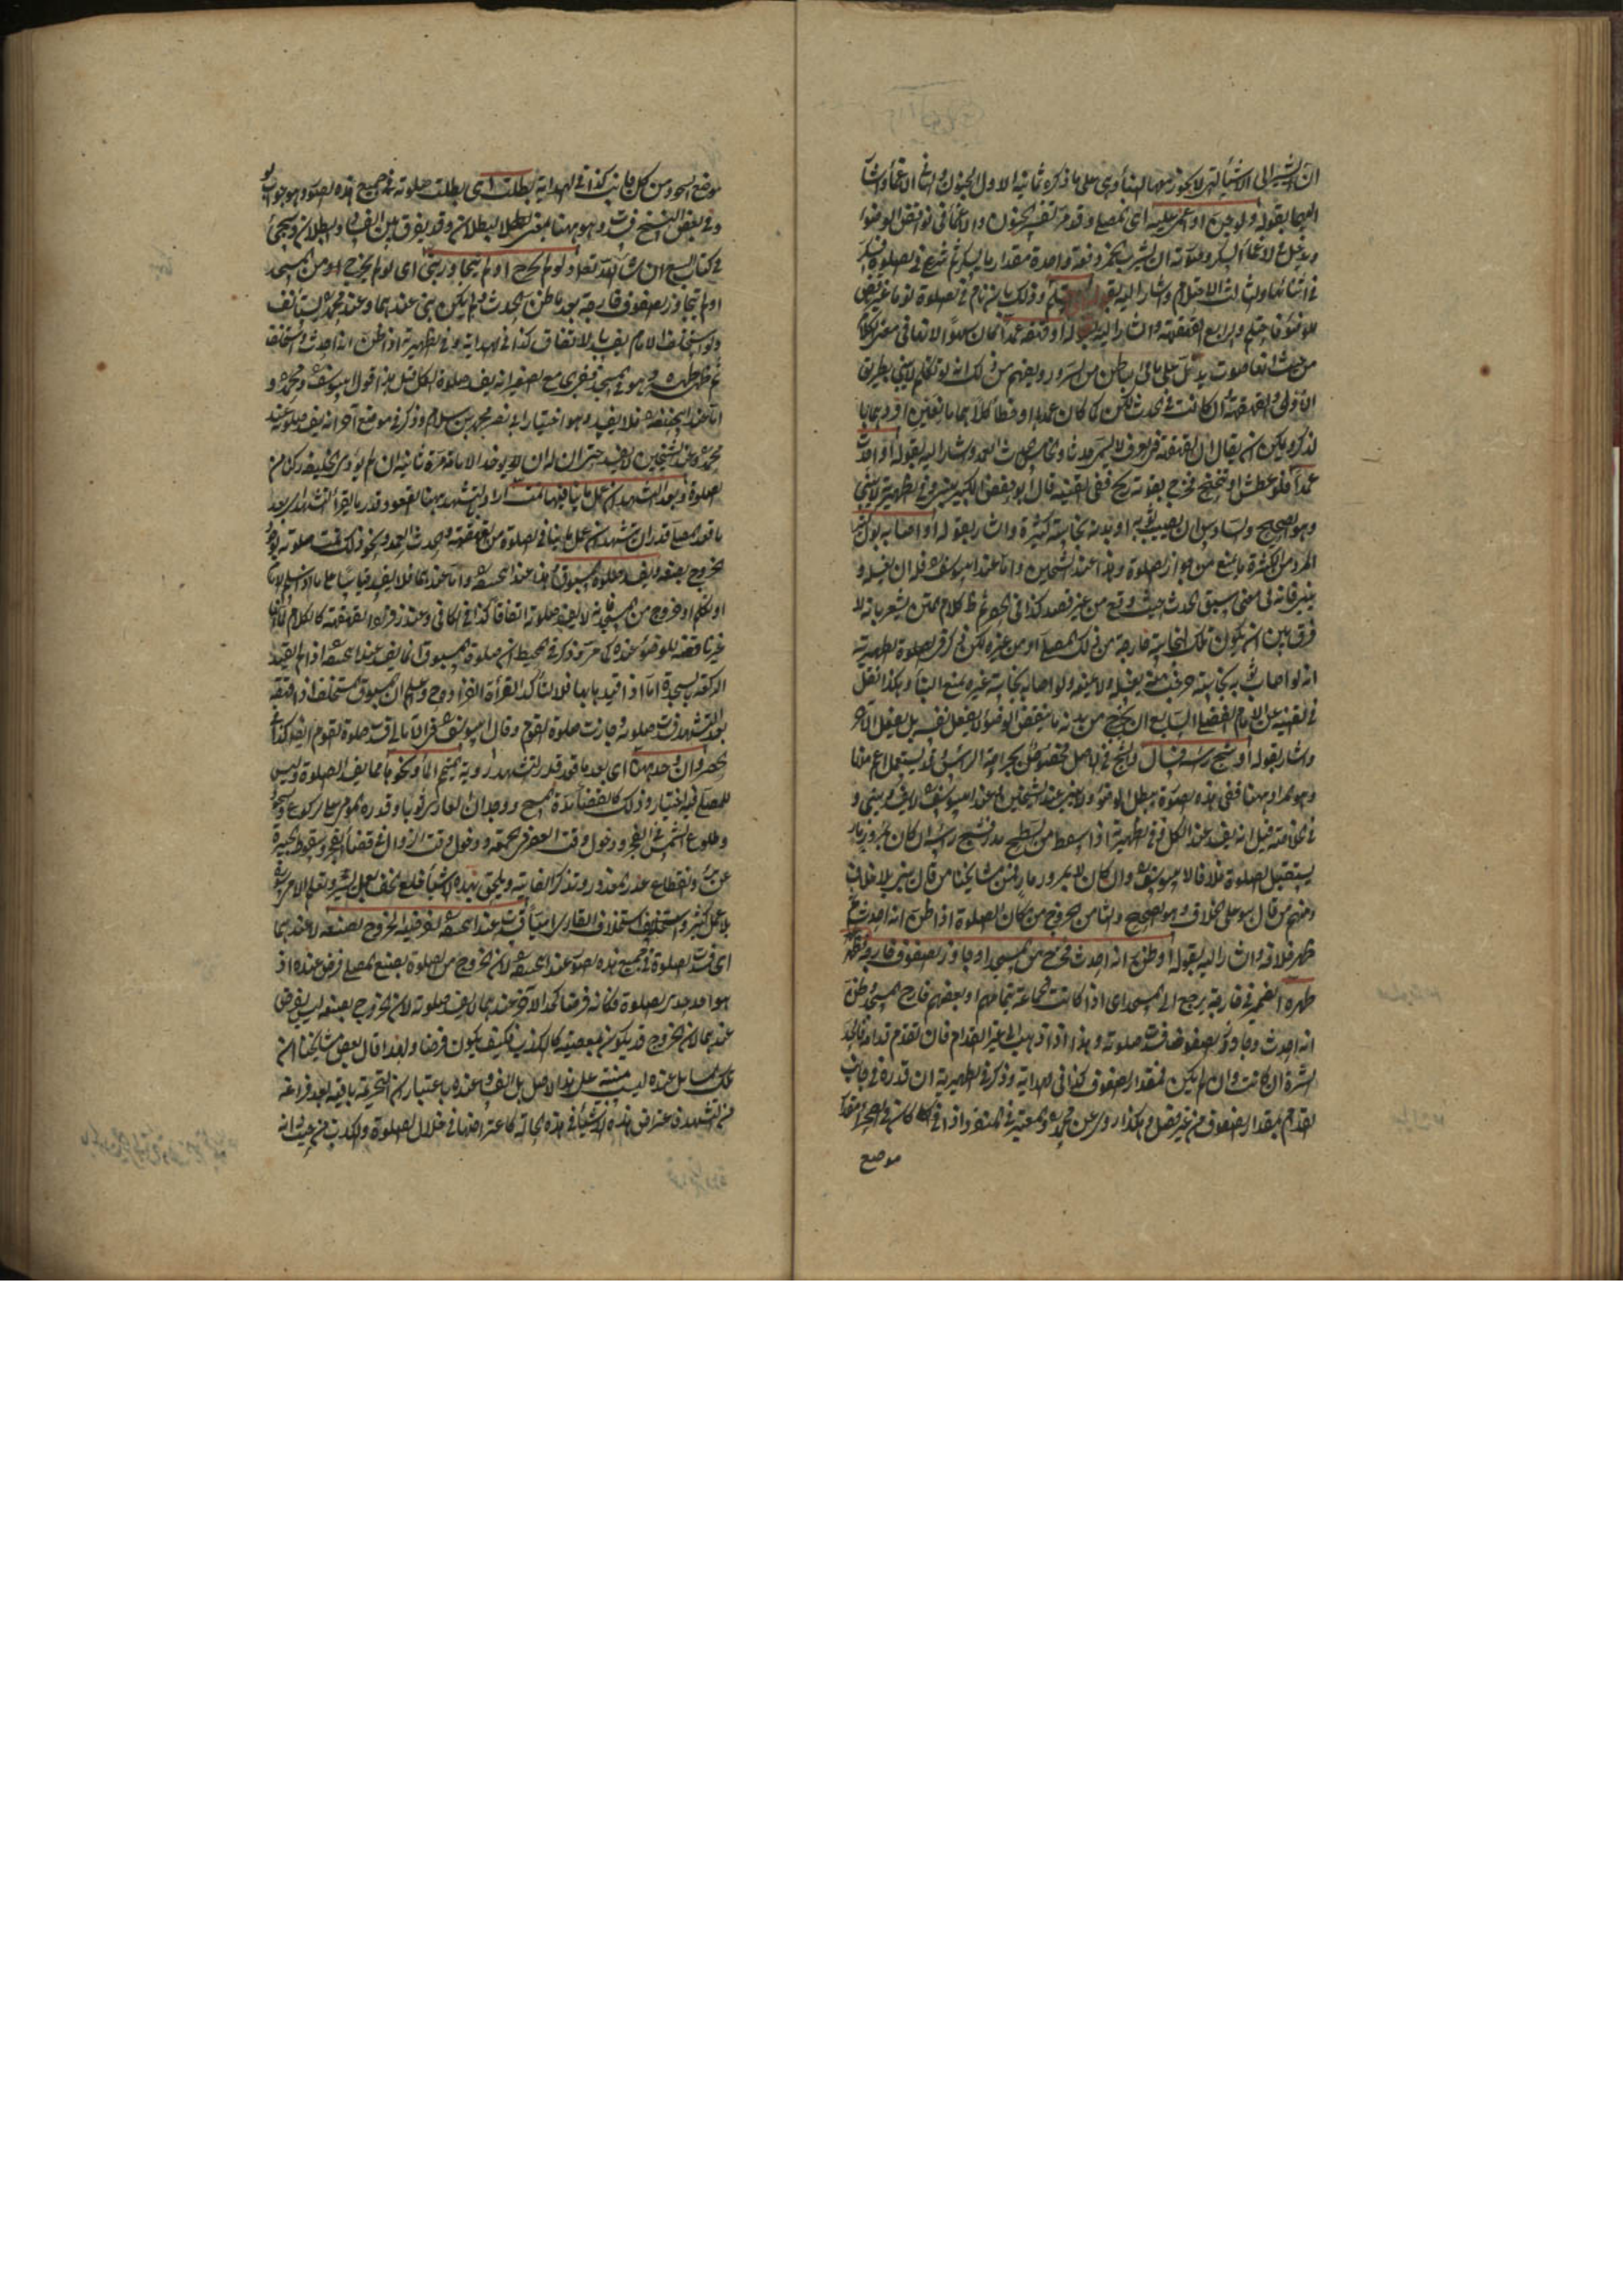 ان يشير الى الاشياء التى لا يجوز فيها البناء وهى على ما ذكره ثمانية الاول الجنون والثانى الاغماء واشار
اليهما بقوله ولو جن او اغمى عليه اى المصلى وقد مر تفسير الجنون والاغماء فى نواقض الوضوء
ويدخل فى الاغماء السكر
فى اثنائها والثالث الاحتلام واشار اليه بقوله او احتلم وذلك بان نام فى الصلوة نوما غير ناقض
للوضوء فاحتلم والرابع القهقهة واشار اليه بقوله او قهقه عمدا كان او سهوا لانها فى معنى الكلام
من حيث انها صوت يدل على ما فى الباطن من السرور ويفهم من ذلك انه لو تكلم لا يبنى بطريق
الاولى والقهقهة ان كانت فى الحدث
لذكره ويمكن ان يقال ان القهقهة فى العرف لا يسمى حدثا والخامس الحدث العمد واشار اليه بقوله او احدث
عمدا فلو عطش او تنحنح فخرج بقوته ريح ففى القنية قال ابو حفص الكبير يبنى وفى الظهيرية لا يبنى
وهو الصحيح والسادس ان يصيب ثوبه او بدنه نجاسة كثيرة واشار بقوله او اصابه بول كثير
المراد من الكثرة ما يمنع من جواز الصلوة وهذا عند الشيخين واما عند ابى يوسف فله ان يغسله و
يبنى لانه فى معنى سبق الحدث حيث وقع من غير قصد كذا فى الجوهرة ظ كلام المتن يشعر بانه لا
فرق بين ان يكون تلك النجاسة خارجة من ذلك المصلى او من غيره لكن ذكر فى الصلوة الظهيرية
انه لو اصاب ثوبه نجاسة من حدثه يغسله ولا يمنعه ولو اصابه نجاسة غيره يمنع البناء وهكذا نقل
فى القنية عن الامام الفضلى السابع ان يخرج من بدنه ما ينقض الوضوء لا بفعل نفسه بل بفعل الآخر
واشار بقوله او شج رأسه فسال والشج فى الاصل مخصوص بجراحة الرأس وقد يستعمل اعم منها
وهو المراد ههنا ففى هذه الصورة يبطل الوضوء ولا يبنى عند الشيخين اما عند ابى يوسف لا يفسد ويبنى و
فى الخلاصة قيل انه يفسد عند الكل وفى الظهيرية اذا سقط من السطح مدر فشج رأسه ان كان بمرور مار
يستقبل الصلوة خلافا لابى يوسف وان كان لا بمرور مار فمن مشايخنا من قال يبنى بلا خلاف
ومنهم من قال هو على الخلاف وهو الصحيح والثامن الخروج من مكان الصلوة اذا ظن انه احدث ثم
ظهر خلافه واشار اليه بقوله او ظن انه احدث فخرج من المسجد او جاوز الصفوف خارجه ثم ظهر
طهره الضمير فى خارجه يرجع الى المسجد اى اذا كانت الجماعة بتمامهم او بعضهم خارج المسجد وظن
انه احدث وجاوز الصفوف فسدت صلوته وهذا اذا ذهب الى غير القدام فان تقدم قدامه فالحد
السترة ان كانت وان لم يكن فمقدار الصفوف كذا فى الهداية وذكر فى الظهيرية ان قدره فى جانب
القدام بمقدار الصفوف من غير فصل وهكذا روى عن محمد والمعتبر فى المنفرد
موضع
موضع السجود من كل جانب كذا فى الهداية بطلت اى بطلت صلوته فى جميع هذه الصور وهو جواب لو
وفى بعض النسخ فسدت وهو ههنا بمعنى البطلان وقد يفرق بين الفساد والبطلان وسيجئ
فى كتاب البيع ان شاء الله تعالى ولو لم يخرج او لم يتجاوز بنى اى لو لم يخرج من المسجد
او لم يتجاوز الصفوف خارجه بعد ما ظن الحدث ولم يكن بنى عندهما وعند محمد يستأنف
ولو استخلف الامام يفسد بالاتفاق كذا فى الهداية وفى الظهيرية اذا ظن انه احدث واستخلف
ثم ظهر طهره وهو فى المسجد ففى رواية ابى جعفر انه يفسد صلوة الكل قيل هذا قول ابى يوسف ومحمد و
اما عند ابى حنيفة فلا يفسد وهو اختيار ابى نصر محمد بن سلام وذكر فى موضع آخر انه يفسد صلوته عند
محمد وعند الشيخين لا يفسد حتى ان له ان يأخذ الامامة مرة ثانية ان لم يؤد الخليفة ركنا من
الصلوة وبعد التشهد ان عمل ما ينافيها تمت اراد بالتشهد ههنا القعود قدر ما يقرأ التشهد اى بعد
ما قعد المصلى قدر التشهد ان عمل ما ينافى الصلوة من القهقهة والحدث العمد ونحو ذلك تمت صلوته لوجود
الخروج بصنعه ويفسد صلوة المسبوق هذا عند ابى حنيفة واما عندهما فلا يفسد قياسا على ما لو سلم الامام
او تكلم او خرج من المسجد فانه لا يفسد صلوته اتفاقا كذا فى الكافى وعند زفر القهقهة كالكلام
غير ناقضة للوضوء عنده كما مر وذكر فى المحيط ان صلوة المسبوق انما يفسد عند ابى حنيفة اذا لم يقيد
الركعة بسجدة اما اذا قيد بها فلا لتأكد انفراده واعلم ان المسبوق المستخلف اذا قهقه
بعد التشهد فسدت صلوته وجازت صلوة القوم وقال ابو يوسف فى الامالى فسدت صلوة القوم ايضا كذا فى
الحصر وان وجد ههنا اى بعد ما قعد قدر التشهد رؤية المتيمم الماء ونحوها مما يفسد الصلوة وليس
للمصلى فيه اختيار وذلك كانقضاء مدة المسح ووجدان العارى ثوبا وقدرة المومى على الركوع والسجود
وطلوع الشمس فى الفجر ودخول وقت العصر فى الجمعة ودخول وقت الزوال فى قضاء الفجر وسقوط الجبيرة
عن برء وانقطاع عذر المعذور وتذكر الفائتة ويلحق بهذه الاشياء خلع الخف بعمل يسير وتعلم الامى سورة
بلا عمل كثير واستخلاف القارى اميا فسدت عند ابى حنيفة لفرضية الخروج بصنعه لا عندهما
اى فسدت الصلوة فى جميع هذه الصور عند ابى حنيفة لان الخروج من الصلوة بصنع المصلى فرض عنده اذ
عندهما لان الخروج قد يكون بمعصية كالكذب فكيف يكون فرضا ولهذا قال بعض مشايخنا ان
تلك المسائل عنده ليست مبنية على هذا الاصل بل الفساد عنده باعتبار ان التحريمة باقية بعد فراغه
من التشهد فاعتراض هذه الاشياء فى هذه الحالة كاعتراضها فى خلال الصلوة والكذب من حيث انه